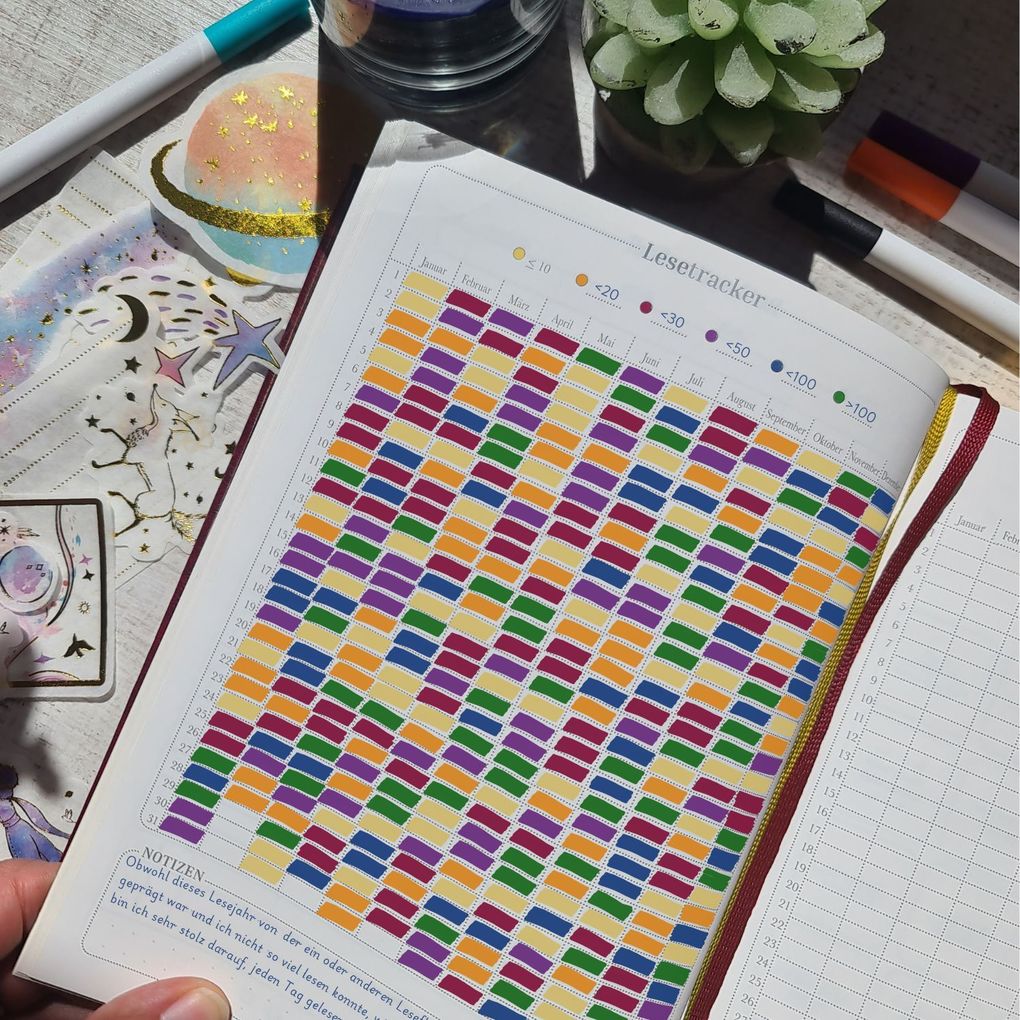 Lesetracker
≤ 10
<20
<30
<50
<100
>100
Januar Februar März April Mai Juni Juli August September Oktober November
1
2
3
4
5
6
7
8
9
10
11
12
13
14
15
16
17
18
19
20
21
22
23
24
25
26
27
28
29
30
31
NOTIZEN
Obwohl dieses Lesejahr von der ein oder anderen
geprägt war und ich nicht so viel lesen konnte,
bin ich sehr stolz darauf, jeden Tag
Januar
1
2
3
4
5
6
7
8
9
10
11
12
13
14
15
16
17
18
19
20
21
22
23
24
25
26